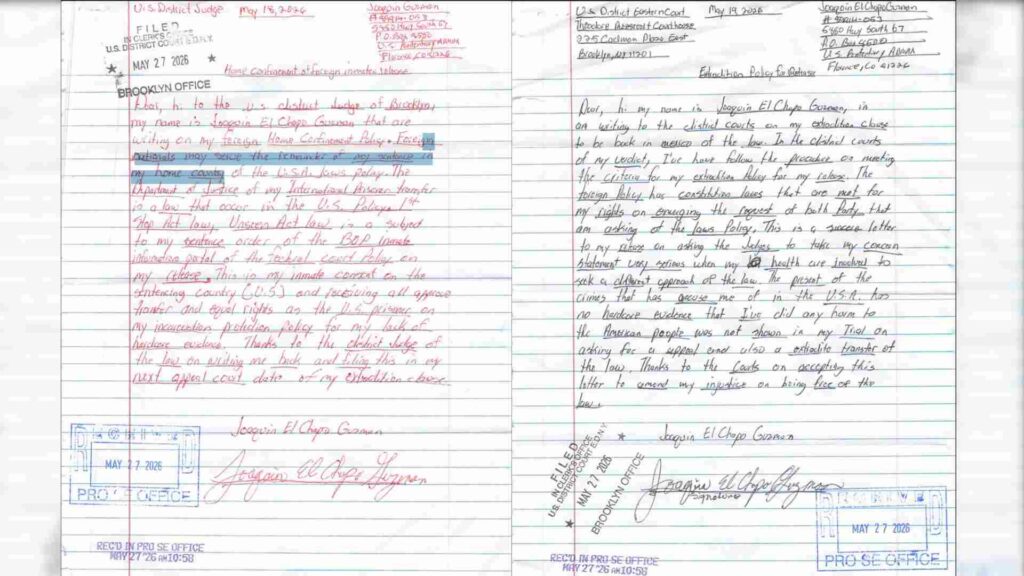 U.S. District Judge May 18, 2026
Joaquin Guzman
5880 Hwy South 67
P.O. Box 8500
Florence, Co 81226
FILED
IN CLERK'S OFFICE
U.S. DISTRICT COURT E.D.N.Y.
★ MAY 27 2026 ★
BROOKLYN OFFICE
Home confinement of foreign inmates release
hi to the U.S district Judge of Brooklyn,
my name is Joaquin El Chapo Guzman that are
writing on my foreign Home Confinement Policy. Foreign
nationals may serve the remainder of my sentence in
my home country of the U.S.A. laws policy. The
Department of Justice of my International Prisoner transfer
is a law that occur in the U.S. Policy. 1st
Step Act law, Unseen Act law is a subject
to my sentence order of the BOP inmate
information portal of the federal court Policy on
my release. This is my inmate consent on the
sentencing country (U.S) and receiving all approve
transfer and equal rights as the U.S prisoner on
my incarceration protection policy for my lack of
hardcore evidence. Thanks to the district Judge of
the law on writing me back and filing this in my
next appeal court date of my extradition clause.
Joaquin El Chapo Guzman
Joaquin El Chapo Guzman
RECEIVED
MAY 27 2026
PRO SE OFFICE
REC'D IN PRO SE OFFICE
MAY 27 '26 AM 10:58
U.S. District Eastern Court May 19, 2026
Theodore Courthouse
225 Cadman Plaza East
Brooklyn, NY 11201
Joaquin El Chapo Guzman
5880 Hwy South 67
P.O. Box
Florence, Co 81226
Extradition Policy for Release
Dear, hi my name is Joaquin El Chapo Guzman, in
an writing to the district courts on my extradition clause
to be back in mexico of the law. In the district courts
of my verdict, I've have follow the procedure on meeting
the criteria for my extradition Policy for my release. The
foreign Policy has constitution laws that are met for
my rights on the request of both Party that
am asking of the laws Policy. This is a letter
to my release on asking the Judges to take my concern
statement very serious when my health are involved to
seek a different approach of the law. The present of the
crimes that has accuse me of in the U.S.A. has
no hardcore evidence that I've did any harm to
the American people was not shown in my Trial on
asking for a appeal and also a extradite transfer of
the law. Thanks to the Courts on accepting this
letter to amend my injustice on being free of the
law.
Joaquin El Chapo Guzman
Joaquin El Chapo Guzman
signature
FILED
IN CLERK'S OFFICE
U.S. DISTRICT COURT E.D.N.Y.
★ MAY 27 2026 ★
BROOKLYN OFFICE
RECEIVED
MAY 27 2026
PRO SE OFFICE
REC'D IN PRO SE OFFICE
MAY 27 '26 AM 10:58